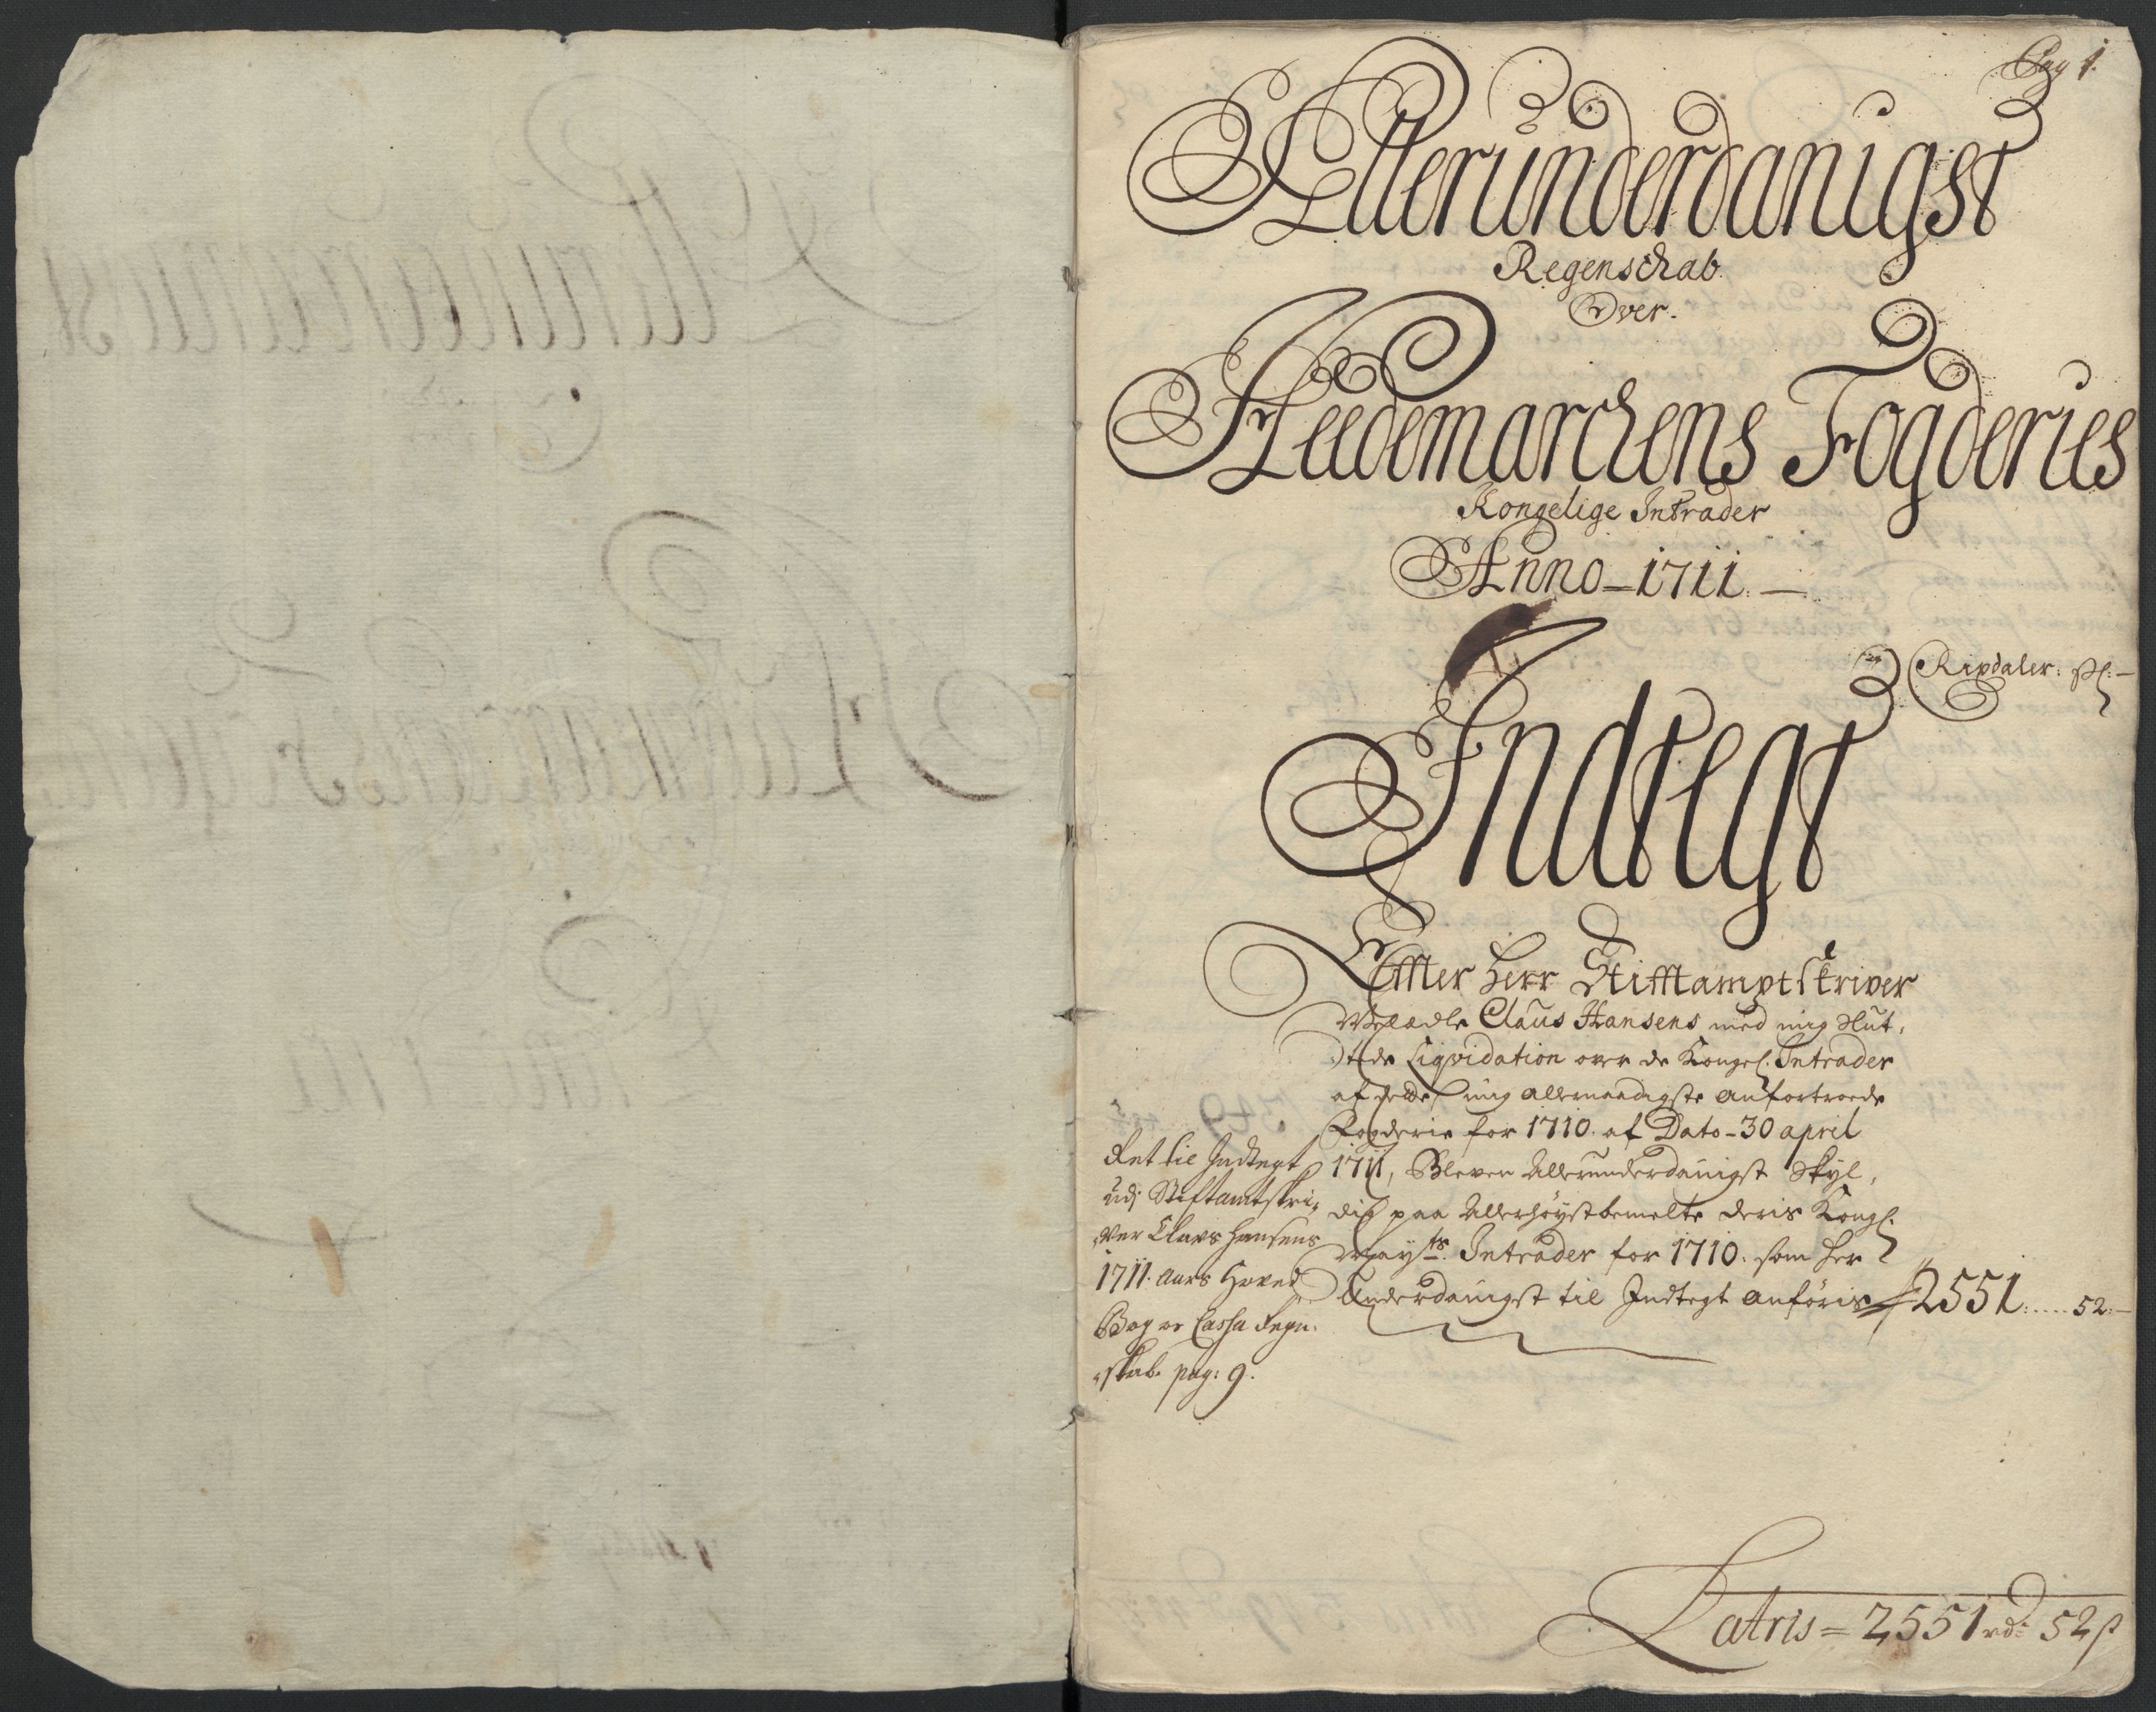 Pag 1.
Allerunderdanigst
Regenschab
Over.
Heedemarchens Fogderies
Kongelige Intrader
Anno - 1711. -
Rixdaler: ß: -
Indtegt
Effter Herr Stifftamptskriver
Weladle Claus Hansens med mig Slut,
tede Liqvidation over de Kongel. Intrader
af dette mig allernaadigste anfortroede
Fogderie for 1710. af Dato - 30 april
1711, Bleven Allerunderdanigst Skyl,
dig paa Allerhöystbemelte deris Kongl.
Mayts. Intrader for 1710. som her
Underdanigst til Indtegt anföris 2551 ..... 52: -
Ret til Indtegt
udj Stiftamtskri,
,ver Claus Hansens
1711. aars Hoved
Bog oc Cassa Regn.
,skab. pag: 9.
Latris = 2551 rd: 52 ß